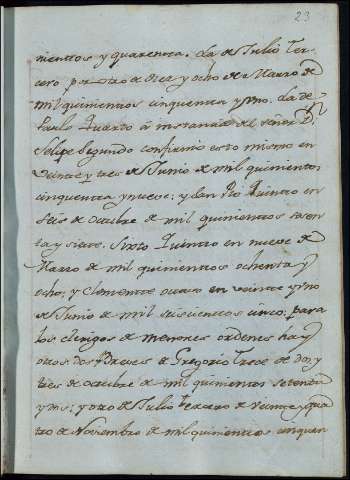 23
nientos y quarenta. La de Julio Ter-
cero por otro de diez y ocho de Marzo de
mil quinientos cinquenta y uno. La de
Paulo Quarto á instancia del señor D.n
Felipe Segundo confirmó esto mismo en
veinte y tres de Junio de mil quinientos
cinquenta y nueve; y San Pio Quinto en
seis de octubre de mil quinientos sesen
ta y siete. Sixto Quinto en nueve de
Marzo de mil quinientos ochenta y
ocho; y Clemente octavo en veinte y uno
de Junio de mil seiscientos cinco; para
los clerigos de menores ordenes hay
otros dos Breves de Gregorio Trece de dos y
tres de octubre de mil quinientos setenta
y uno; y otro de Julio tercero de veinte y qua
tro de Noviembre de mil quinientos cinquen